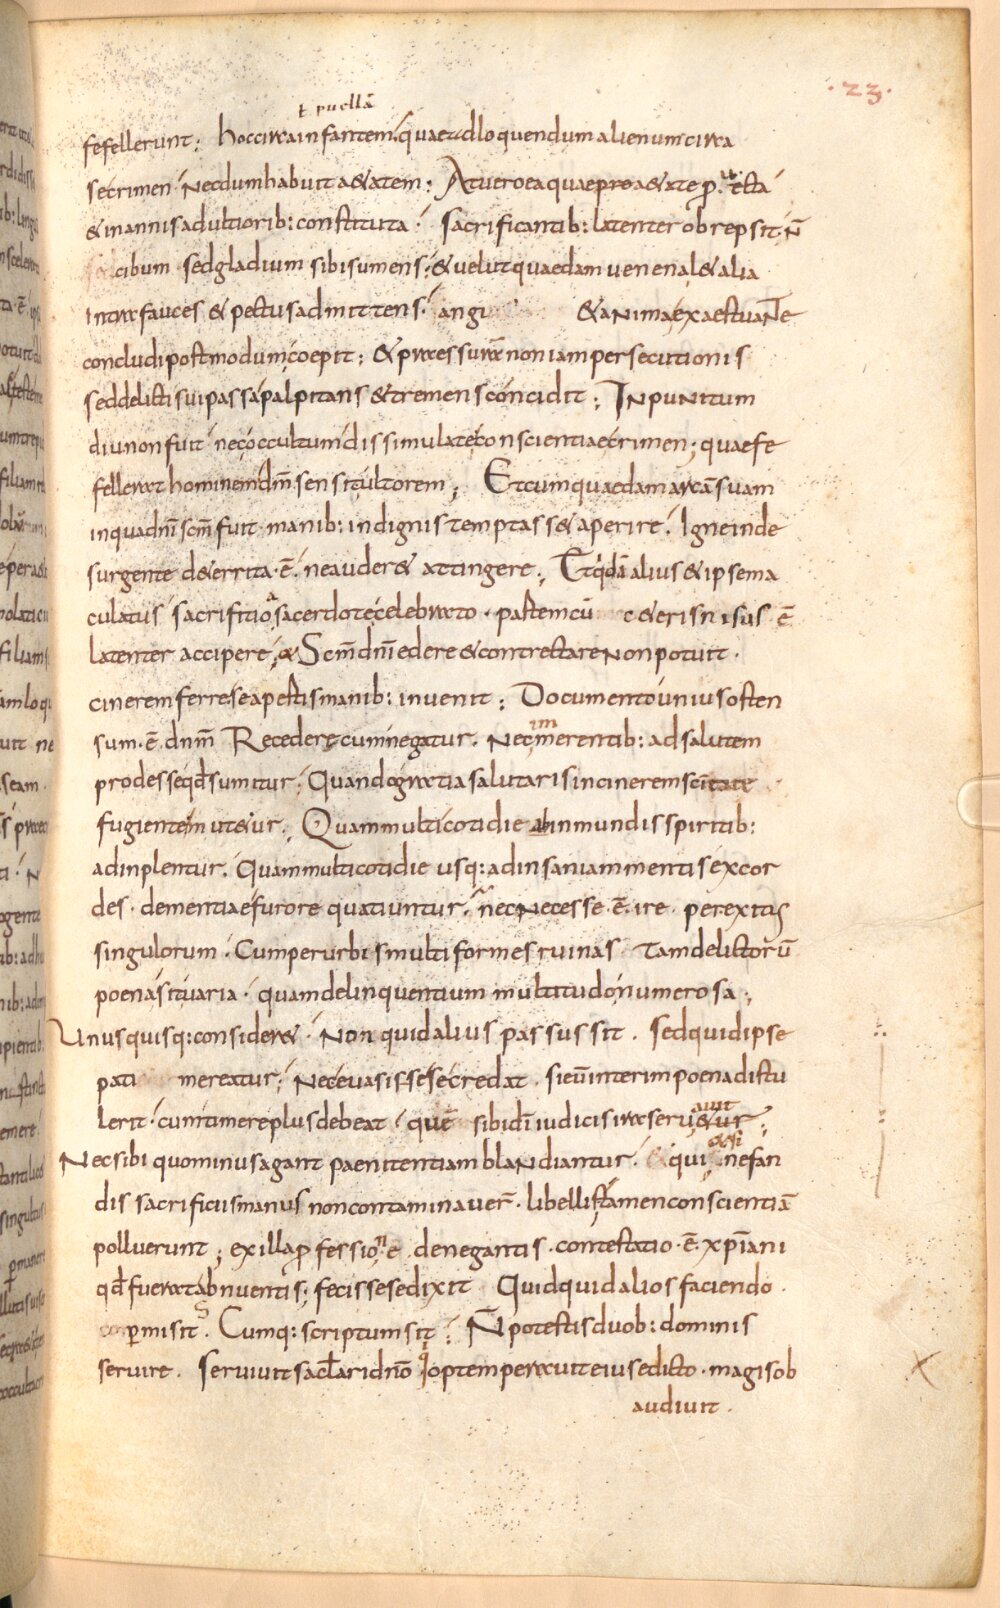 ·23·
ł puellā
fefellerunt; hoc circa infantem. quae ad loquendum alienum circa
se crimen necdum habuit aetatem; At vero ea quae proa&ate p. uecta
& in annis adultiorib: constituta· sacrificantib: latenter obrepsit· n̄
cibum sed gladium sibi sumens; & velut quaedam venena letalia
intra fauces & pectus admittens· angi & anima exaestuante
concludi postmodum coepit; & pressurā non iam persecutionis
sed delicti sui passa palpitans & tremens concidit; Inpunitum
diu non fuit nec occultum dissimulatae conscientiae crimen; quae fe
fellerat hominem dm̄ sensit ultorem; Et cum quaedam arcā suam
in qua dnī scm̄ fuit· manib: indignis temptasset aperire· Igne inde
surgente deterrita·ē· ne auderet attingere; Et qdā alius & ipse ma
culatus sacrifitio a sacerdote celebrato· partem cū ceteris n isus ē
latenter accipere; & Scm̄ dnī edere & contrectare non potuit·
cinerem ferre se apertis manib: invenit; Documento unius osten
sum·ē· dnm̄ Recedere cum negatur. Nec inmerentib: ad salutem
prodesse qd̄ sumitur; Quando gratia salutaris in cinerem scītate
fugiente mutetur; Quam multi cotidie ab inmundis spiritib:
adinplentur. Quam multi cotidie usq: ad insaniam mentis excor
des· dementiae furore quatiuntur. nec Necesse·ē·ire per exitus
singulorum· Cum per urbis multiformes ruinas tam delictorū
poena sit varia· quam delinquentium multitudo numerosa;
Unusquisq: consideret· Non quid alius passus sit. sed quid ipse
pati mereatur; Nec evasisse se credat· si eū interim poena distu
lerit· cum timere plus debeat· quē sibi dī iudicis ira servauit
Nec sibi quominus agant paenitentiam blandiantur. qui &si nefan
dis sacrificiis manus non contaminaver̄· libellis tamen conscientiā
polluerunt; ex illa professione denegantis· contestatio·ē· xp̄iani
qd̄ fuerat abnuentis; fecisse se dixit Quidquid alios faciendo
permisit. Cumq: scriptum sit; N̄ potestis duob: dominis
servire. Serviuit saeculari dnō q optemperavit eius edicto· magis ob
audiuit.